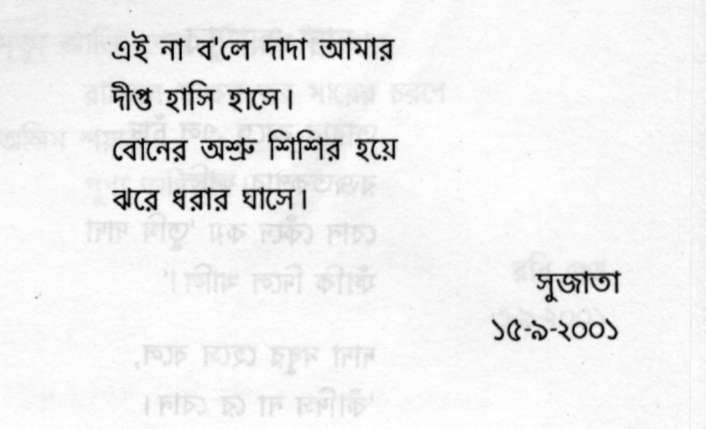 এই না ব'লে দাদা আমার
দীপ্ত হাসি হাসে।
বোনের অশ্রু শিশির হয়ে
ঝরে ধরার ঘাসে।
সুজাতা
১৫-৯-২০০১